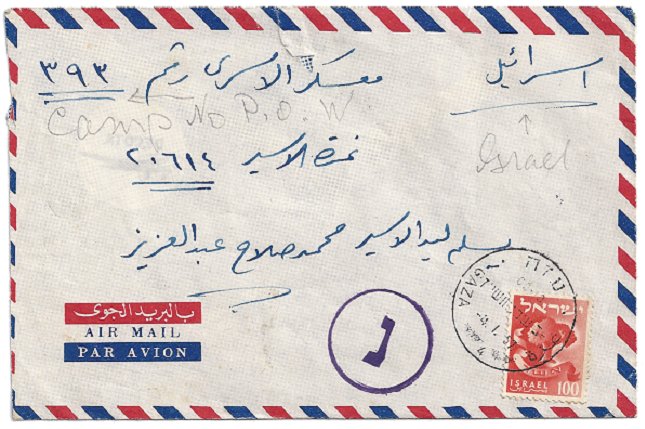 اسرائيل
معسكر الاسرى رقم ٣٩٣
Camp No P.O.W.
Israel
نمرة الاسير
٢٠٦١٤
يسلم ليد الاسير محمد صلاح عبد العزيز
بالبريد الجوى
AIR MAIL
PAR AVION
עזה
GAZA
ישראל
ISRAEL
100